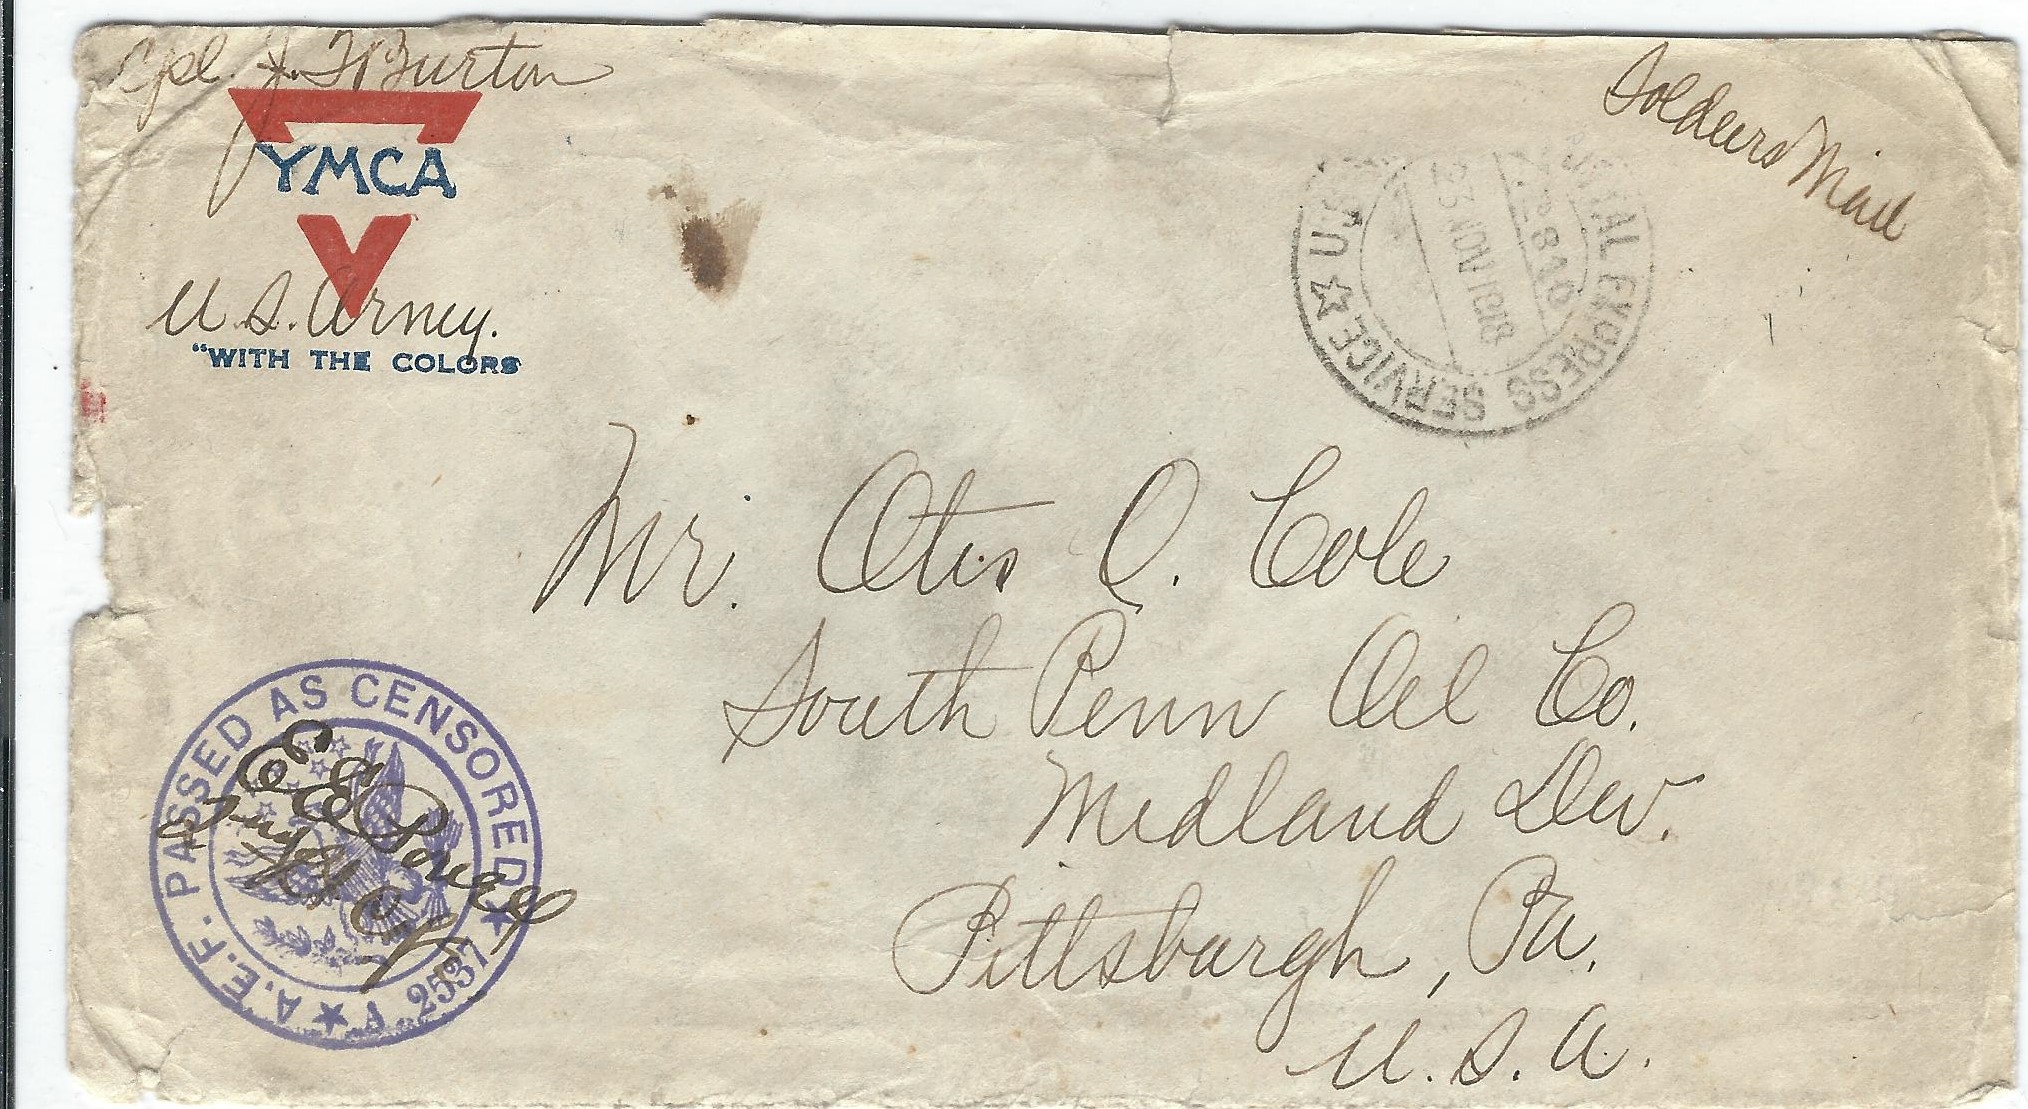 Cpl. J. F. Burton
YMCA
U.S. Army.
"WITH THE COLORS
Soldiers Mail
POSTAL EXPRESS SERVICE ★ U.S.
23 NOV 1918
Mr. Otis O. Cole
South Penn Oil Co.
Midland Div.
Pittsburgh, Pa.
U.S.A.
A.E.F. PASSED AS CENSORED ★ A 2537 ★